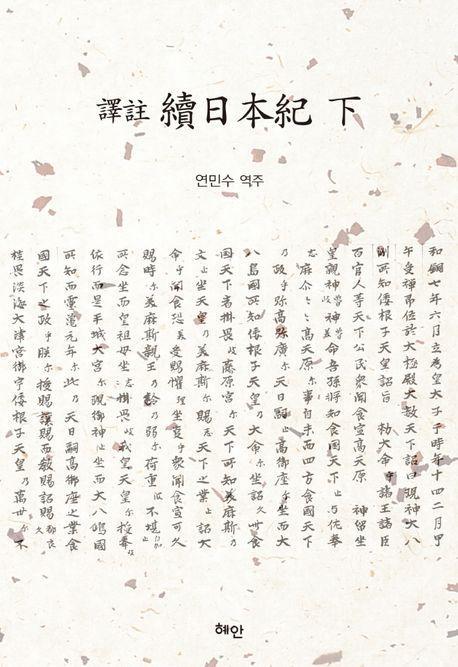 譯註 續日本紀 下
연민수 역주
和銅七年六月立為皇太子于時年十四二月甲
午受禪即位於大極殿大赦天下詔曰現神大八
洲所知倭根子天皇詔旨勅大命乎諸王諸臣
百官人等天下公民衆聞食宣高天原神留坐
皇親神魯岐神魯美命吾孫將知食國天下止与佐奉
志麻尓々高天原尓事自未而四方食國天下
乃政乎弥高弥廣尓天日嗣止高御座尓坐而大
八島國所知倭根子天皇乃大命尓坐詔久此食
國天下者掛畏岐藤原宮尓天下所知美麻斯乃
父止坐天皇乃美麻斯尓賜志天下之業止詔大
命乎聞食恐美受賜懼理坐事乎衆聞食宣可久
賜時尓美麻斯親王乃齡乃弱尓荷重波不堪止
所念坐而皇祖母坐志掛畏岐我皇天皇尓授奉岐
依行而是平城大宮尓現御神止坐而大八嶋國
所知而靈龜元年尓此乃天日嗣高御座之業食
國天下之政乎朕尓授賜讓賜而教賜詔賜都良久
挂畏淡海大津宮御宇倭根子天皇乃萬世尓不
혜안